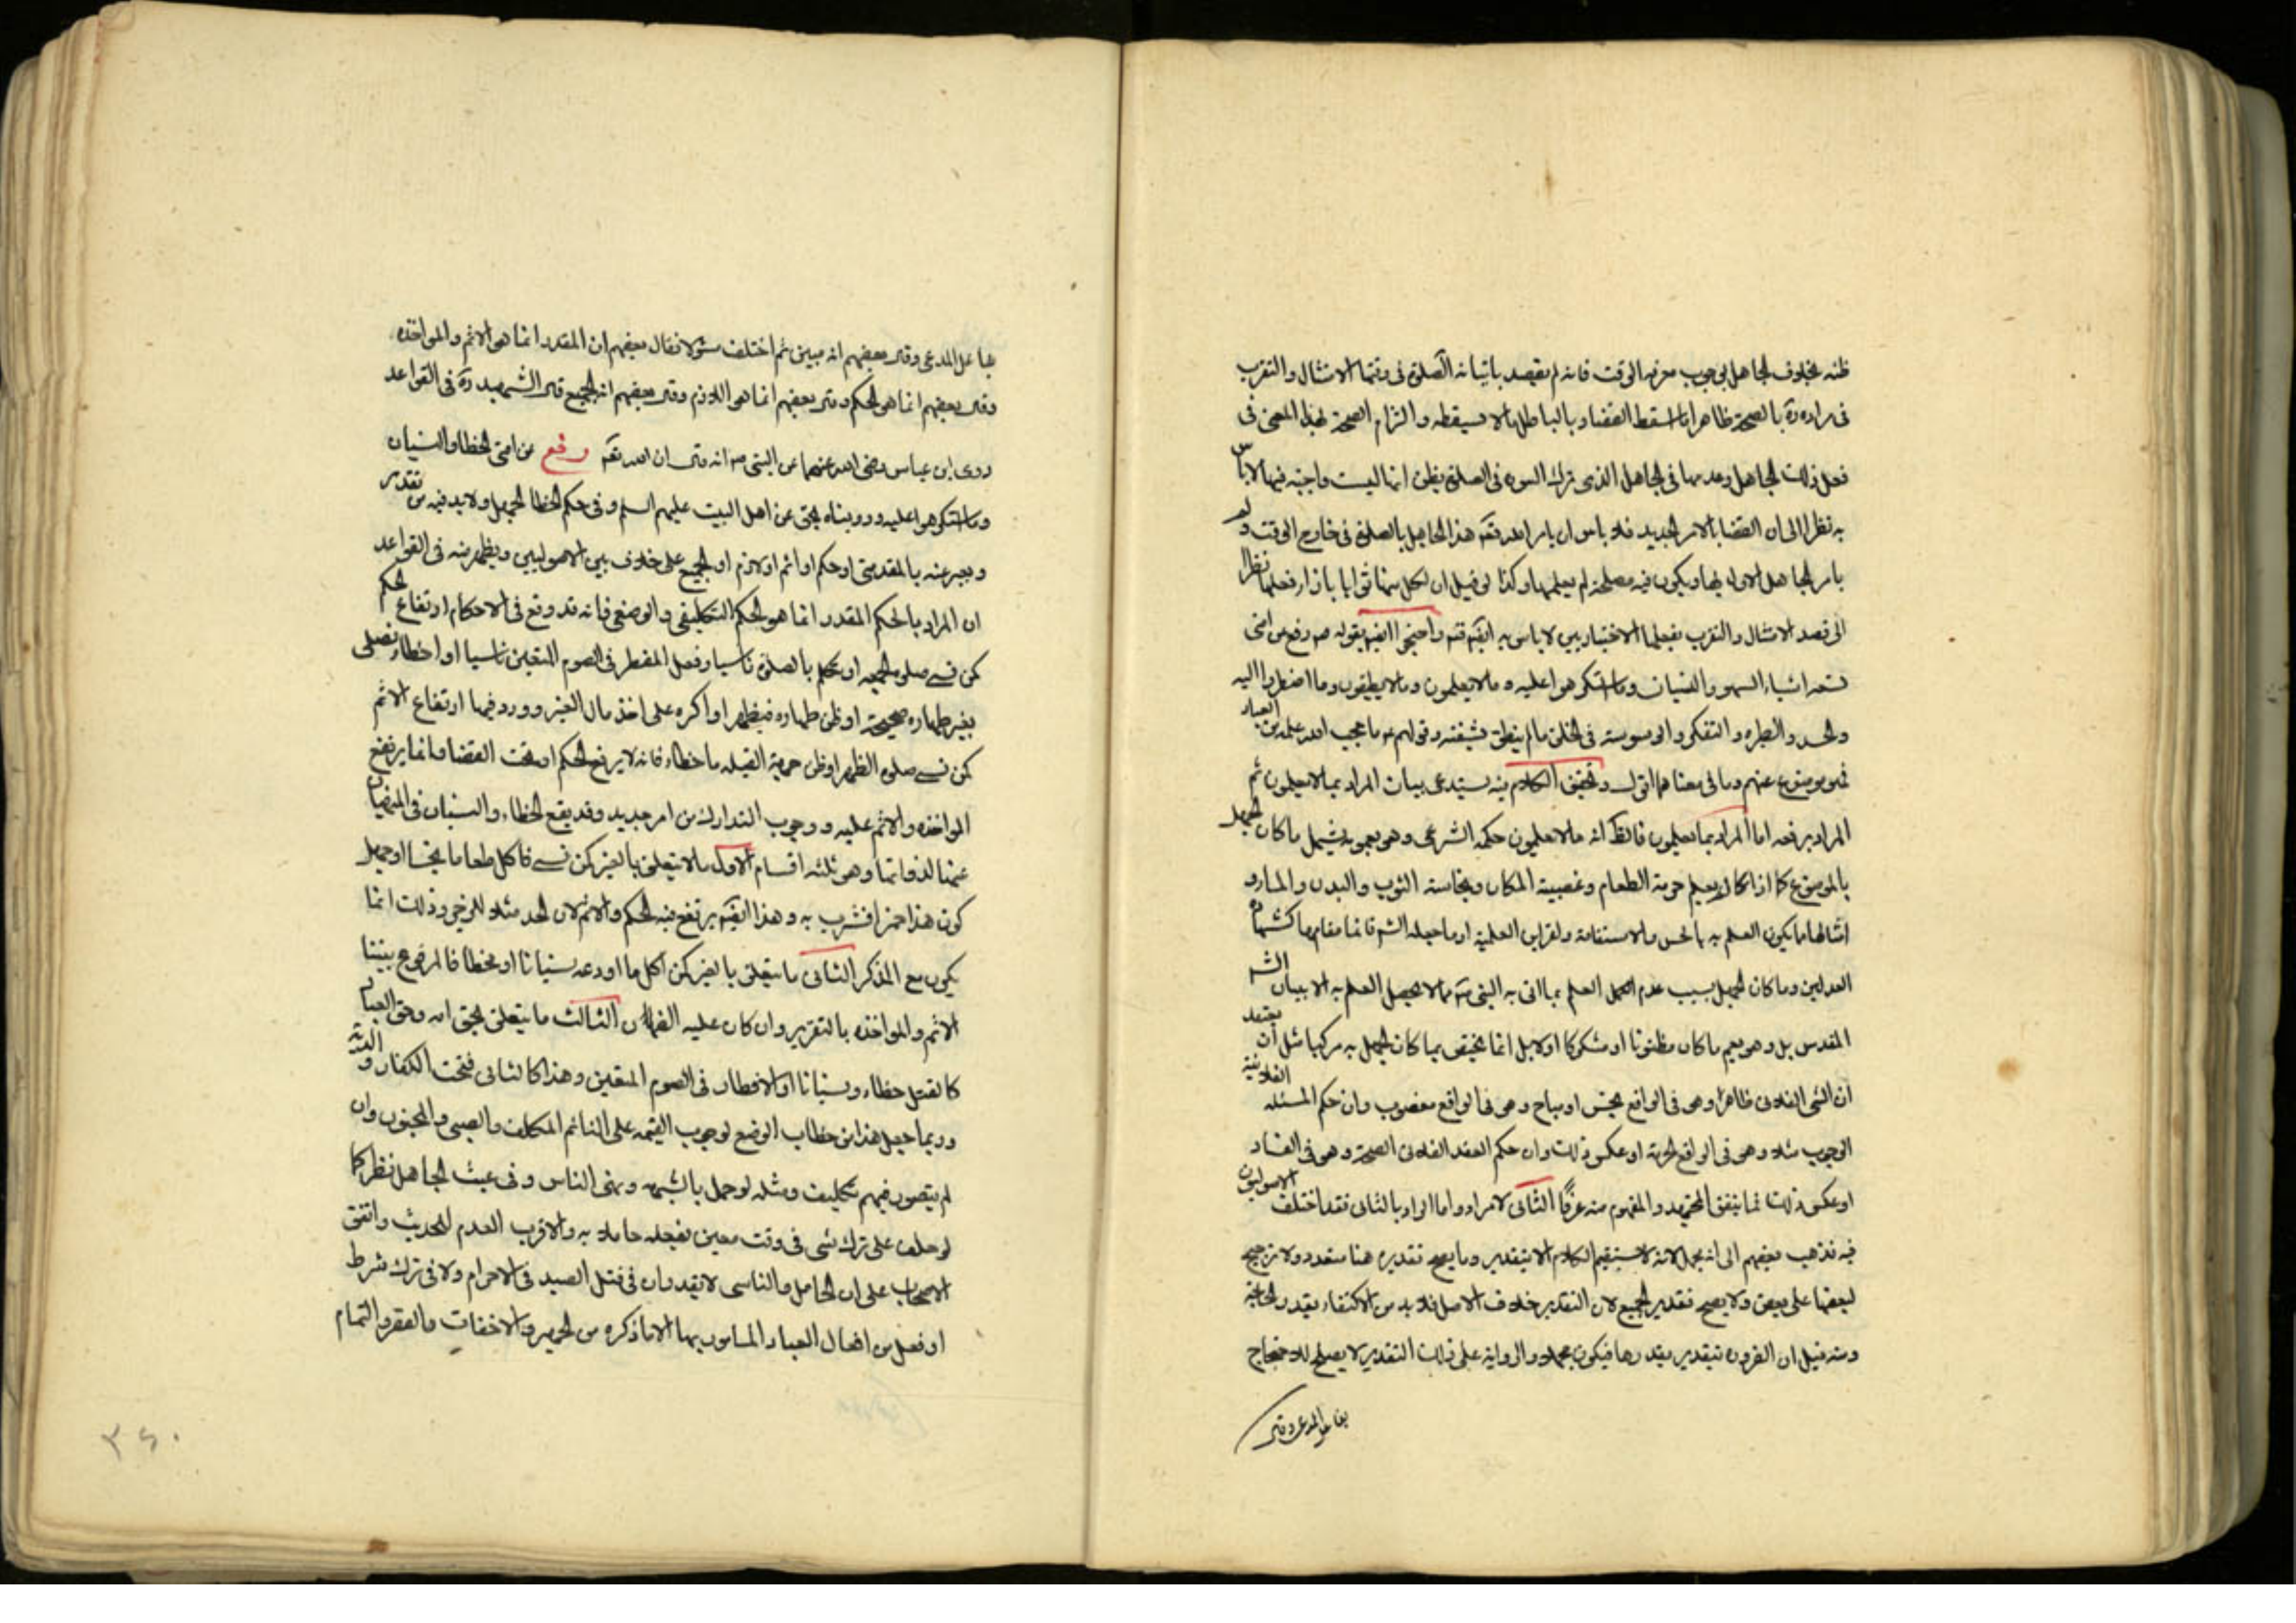 ظنه بخلاف الجاهل بوجوب معرفه الوقت فانه لم يقصد باتيانه الصلوة فى وقتها الامتثال والتقرب
فى مراده ره بالصحة ظاهرا ما اسقط القضاء وبالباطل ما لا يسقطه والتزام الصحة بهذا المعنى فى
فعل ذلك الجاهل وعدمها فى الجاهل الذى ترك السوره فى الصلوة بظن انها ليست واجبة فيها لا باس
به نظرا الى ان القضا بالامر الجديد فلا باس ان يامر الله تعه هذا الجاهل بالصلوة فى خارج الوقت ولم
يامر الجاهل الاول بها ويكون فيه مصلحة لم يعلمها وكذا لو قيل ان لكل منها ثوابا بازاء فعلها نظرا
الى قصد الامتثال والتقرب بفعلهما الاختياريين لا باس به ايضا واحتجوا ايضا بقوله صه رفع عن امتى
تسعه اشياء السهو والنسيان وما استكرهوا عليه وما لا يعلمون وما لا يطيقون وما اضطروا اليه
والحسد والطيره والتفكر والوسوسة فى الخلق ما لم ينطق بشفته وقولهم عه ما حجب الله علمه عن العباد
فهو موضوع عنهم وما فى معناهما اقول وتحقيق الكلام فيه يستدعى بيان المراد بما لا يعلمون ثم
المراد برفعه اما المراد بما لا يعلمون فالظ انه ما لا يعلمون حكمه الشرعى وهو بعمومه يشمل ما كان الجهل
بالموضوع كما اذا كان لم يعلم حرمة الطعام وغصبية المكان ونجاسة الثوب والبدن والماء و
امثالها مما يكون العلم به بالحس والاستفاضة والقراين العلمية او ما جعله الشه قائما مقامها كشهادة
العدلين وما كان الجهل بسبب عدم العلم بما اتى به النبى صه مما لا يحصل العلم به الا ببيان الشه
المقدس بل وهو يعم ما كان مظنونا او مشكوكا اولا بل انما يختص بما كان الجهل به مركبا مثل ان يعتقد
ان الشى الفلانى طاهر وهو فى الواقع نجس او مباح وهو فى الواقع مغصوب وان حكم المسئله الفلانية
الوجوب مثلا وهو فى الواقع الحرمة او عكس ذلك وان حكم العقد الفلانى الصحة وهو فى الفساد
او عكس ذلك كما يتفق للمجتهد والمفهوم منه عرفا الثانى لا مراد واما المراد بالثانى فقد اختلف الاصوليون
فيه فذهب بعضهم الى انه مجمل لانه لا يستقيم الكلام الا بتقدير وما يصح تقديره هنا متعدد ولا ترجيح
لبعضها على بعض ولا يصح تقدير الجميع لان التقدير خلاف الاصل فلا بد من الاكتفاء بقدر الحاجة
ومنه قيل ان الضروره تتقدر بقدرها فيكون مجملا والرواية على ذلك التقدير لا يصلح للاحتجاج
بها على المدعى وقى
بها على المدعى وقى بعضهم انه مبين ثم اختلف هؤلاء فقال بعضهم ان المقدر انما هو الاثم والمواخذه
وقى بعضهم انما هو الحكم وقى بعضهم انما هو اللازم وقى بعضهم انه الجميع قى الشهيد ره فى القواعد
روى ابن عباس رضى الله عنهما عن النبى صه انه قى ان الله تعه رفع عن امتى الخطا والنسيان
وما استكرهوا عليه وروينا نحن عن اهل البيت عليهم السلم وفى حكم الخطا الجهل ولا بد فيه من تقدير
ويعبر عنه بالمقتضى او حكم او اثم او لازم او الجميع على خلاف بين الاصوليين ويظهر منه فى القواعد
ان المراد بالحكم المقدر انما هو الحكم التكليفى والوضعى فانه قد وقع فى الاحكام ارتفاع الحكم
كمن نسى صلوة الجمعه او تكلم بالصلوة ناسيا او فعل المفطر فى الصوم المتعين ناسيا او اخطاء فصلى
بغير طهاره صحيحة او ظن طهاره فيظهر او اكره على اخذ مال الغير وورد فيها ارتفاع الاثم
كمن نسى صلوة الظهر او ظن جهة القبله فاخطاء فانه لا يرفع الحكم ان قلت القضا وانما يرتفع
المواخذه والاثم عليه ووجوب التدارك من امر جديد وقد يقع الخطاء والنسيان فى المنهيات
عنها لذواتها وهو ثلثه اقسام الاول ما لا يتعلق بالغير كمن نسى فاكل طعاما نجسا او جهل
كون هذا خمرا فشرب به وهذا ايضا يرتفع فيه الحكم والاثم لان الحد مثلا للزجر وذلك انما
يكون مع التذكر الثانى ما يتعلق بالغير كمن اكل ما اودعه نسيانا او مخطا فالمرفوع بيننا
الاثم والمواخذه بالتعزير وان كان عليه الضمان الثالث ما يتعلق بحق الله وحق العباد
كالقتل خطاء ونسيانا او الافطار فى الصوم المتعين وهذا كالثانى فتجب الكفاره و الدية
وربما جعل هذا من خطاب الوضع لوجوب القيمه على النائم المكلف والصبى والمجنون وان
لم يتصور فيهم تكليف ومثله لو حمل بالشبهه ونهى الناس وفى عبث الجاهل نظر كما
لو حلف على ترك شى فى وقت معين بفعله جاهلا به والاقرب العدم للحديث واتفق
الاصحاب على ان الجاهل والناسى لا يعذران فى قتل الصيد فى الاحرام ولا فى ترك شرط
او فعل من افعال العباد المامور بها الا ما ذكره من الجهر والاخفات والقصر والتمام
٣٤٠